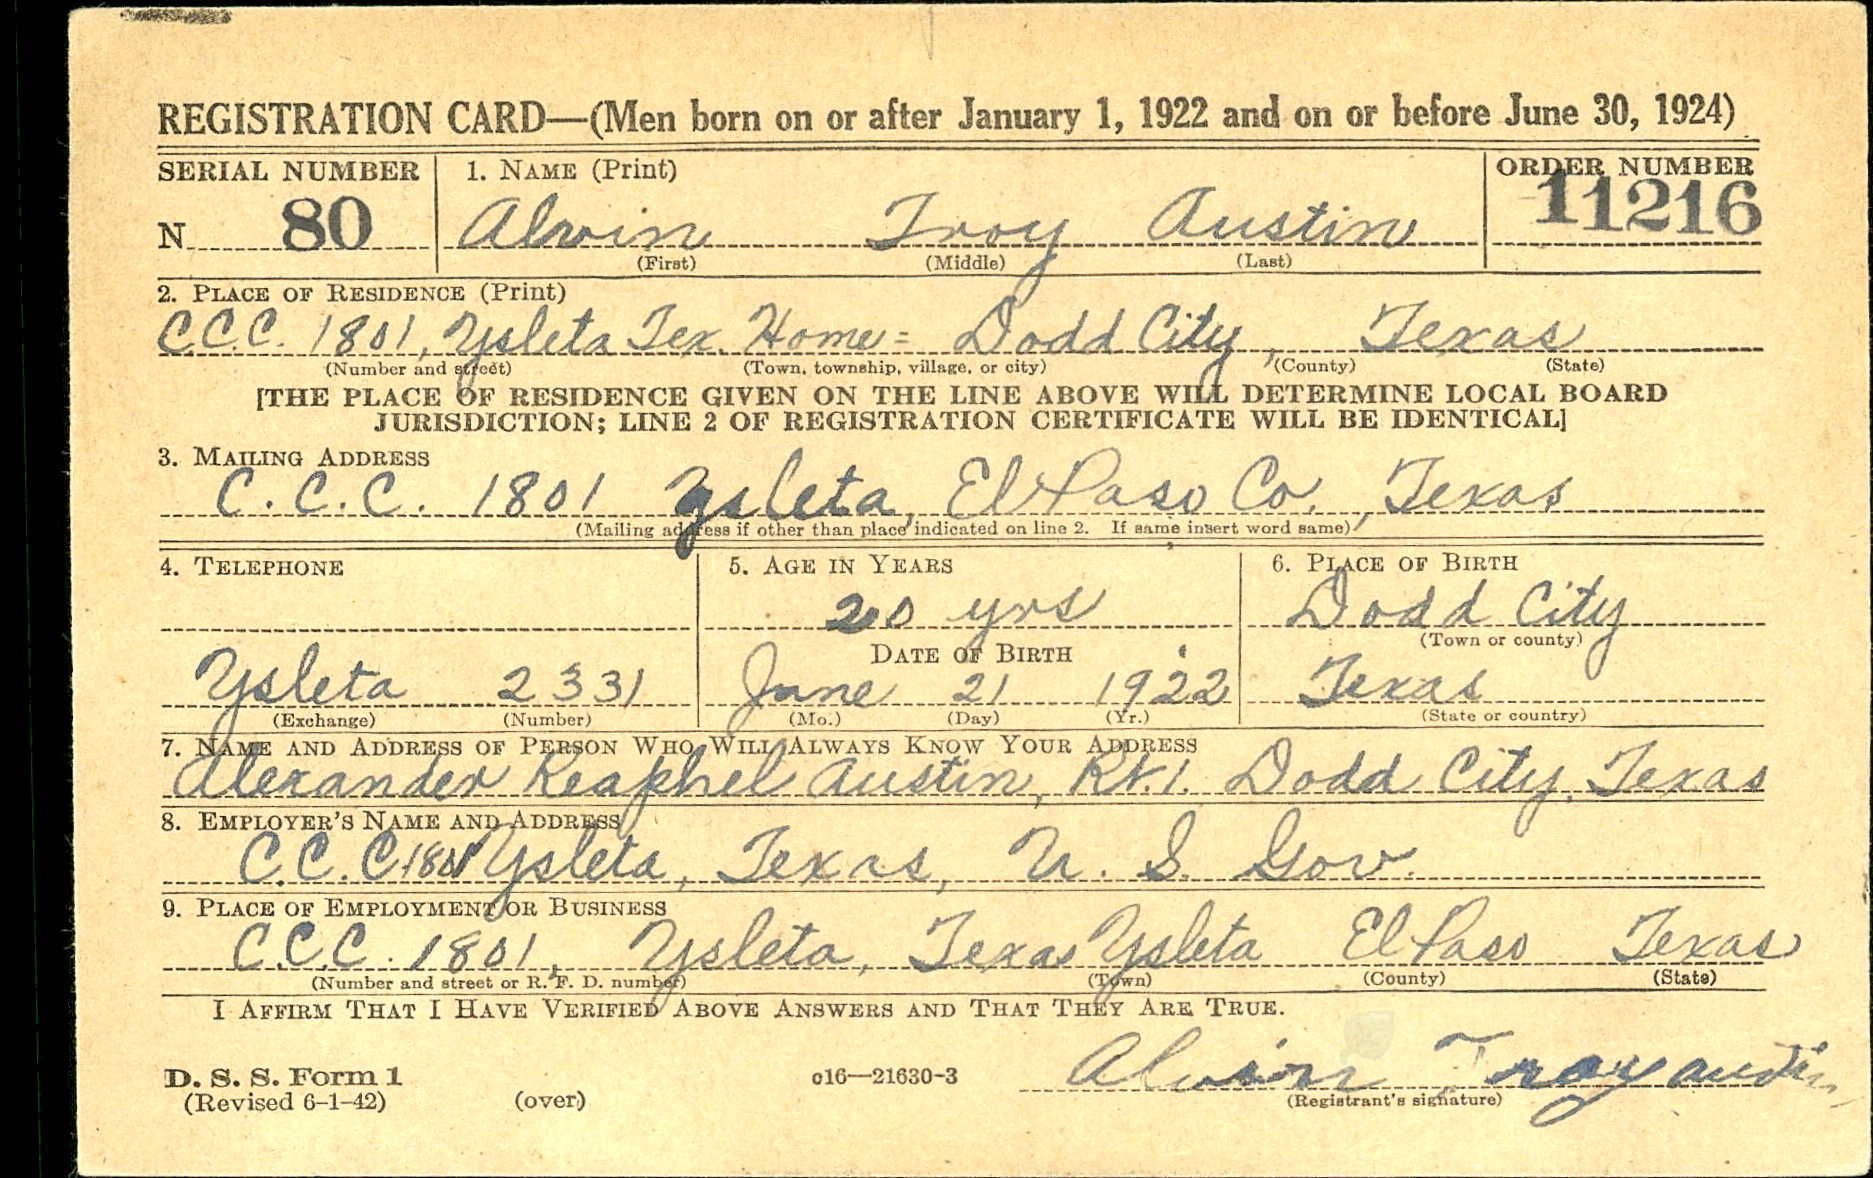 REGISTRATION CARD—(Men born on or after January 1, 1922 and on or before June 30, 1924)
SERIAL NUMBER 1. NAME (Print) ORDER NUMBER
N 80 Alvin Troy Austin 11216
(First) (Middle) (Last)
2. PLACE OF RESIDENCE (Print)
C.C.C. 1801, Ysleta Tex. Home = Dodd City, Texas
(Number and street) (Town, township, village, or city) (County) (State)
[THE PLACE OF RESIDENCE GIVEN ON THE LINE ABOVE WILL DETERMINE LOCAL BOARD
JURISDICTION; LINE 2 OF REGISTRATION CERTIFICATE WILL BE IDENTICAL]
3. MAILING ADDRESS
C. C. C. 1801 Ysleta, El Paso Co., Texas
(Mailing address if other than place indicated on line 2. If same, insert word same)
4. TELEPHONE 5. AGE IN YEARS 6. PLACE OF BIRTH
20 yrs Dodd City
DATE OF BIRTH (Town or county)
Ysleta 2331 June 21 1922 Texas
(Exchange) (Number) (Mo.) (Day) (Yr.) (State or country)
7. NAME AND ADDRESS OF PERSON WHO WILL ALWAYS KNOW YOUR ADDRESS
Alexander Reaphel Austin, Rt. 1. Dodd City, Texas
8. EMPLOYER'S NAME AND ADDRESS
C. C. C. 1801 Ysleta, Texas, U. S. Gov.
9. PLACE OF EMPLOYMENT OR BUSINESS
C.C.C. 1801, Ysleta, Texas Ysleta El Paso Texas
(Number and street or R. F. D. number) (Town) (County) (State)
I AFFIRM THAT I HAVE VERIFIED ABOVE ANSWERS AND THAT THEY ARE TRUE.
D. S. S. Form 1 c16—21630-3 Alvin Troy Austin
(Revised 6-1-42) (over) (Registrant's signature)